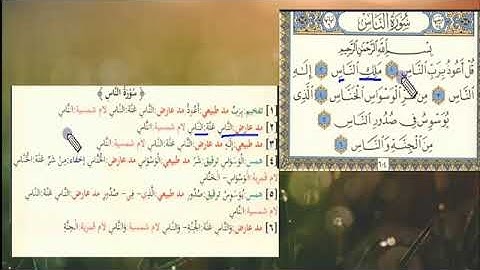 سُورَةُ النَّاسِ
بِسْمِ اللَّهِ الرَّحْمَٰنِ الرَّحِيمِ
قُلْ أَعُوذُ بِرَبِّ النَّاسِ ١ مَلِكِ النَّاسِ ٢ إِلَٰهِ
النَّاسِ ٣ مِن شَرِّ الْوَسْوَاسِ الْخَنَّاسِ ٤ الَّذِي
يُوَسْوِسُ فِي صُدُورِ النَّاسِ ٥
مِنَ الْجِنَّةِ وَالنَّاسِ ٦
٦٠٤
﴿ سُورَةُ النَّاس ﴾
[١] تفخيم: بِرَبِّ مد طبيعي: أَعُوذُ مد عارض: النَّاس غُنَّة: النَّاس لام شمسية: النَّاس
[٢] مد عارض: النَّاس غُنَّة: النَّاس لام شمسية: النَّاس
[٣] مد طبيعي: إِلَٰه مد عارض: النَّاس غُنَّة: النَّاس لام شمسية: النَّاس
[٤] همس: الْوَسْوَاس ترقيق: شَرِّ مد طبيعي: الْوَسْوَاس مد عارض: الْخَنَّاس إخفاء: مِن شَرِّ غُنَّة: الْخَنَّاس
لام قمرية: الْوَسْوَاس - الْخَنَّاس
[٥] همس: يُوَسْوِسُ ترقيق: صُدُورِ مد طبيعي: الَّذِي - فِي - صُدُورِ مد عارض: النَّاس غُنَّة: النَّاس
لام شمسية: النَّاس
[٦] مد عارض: وَالنَّاس غُنَّة: الْجِنَّة - وَالنَّاس لام شمسية: وَالنَّاس لام قمرية: الْجِنَّة